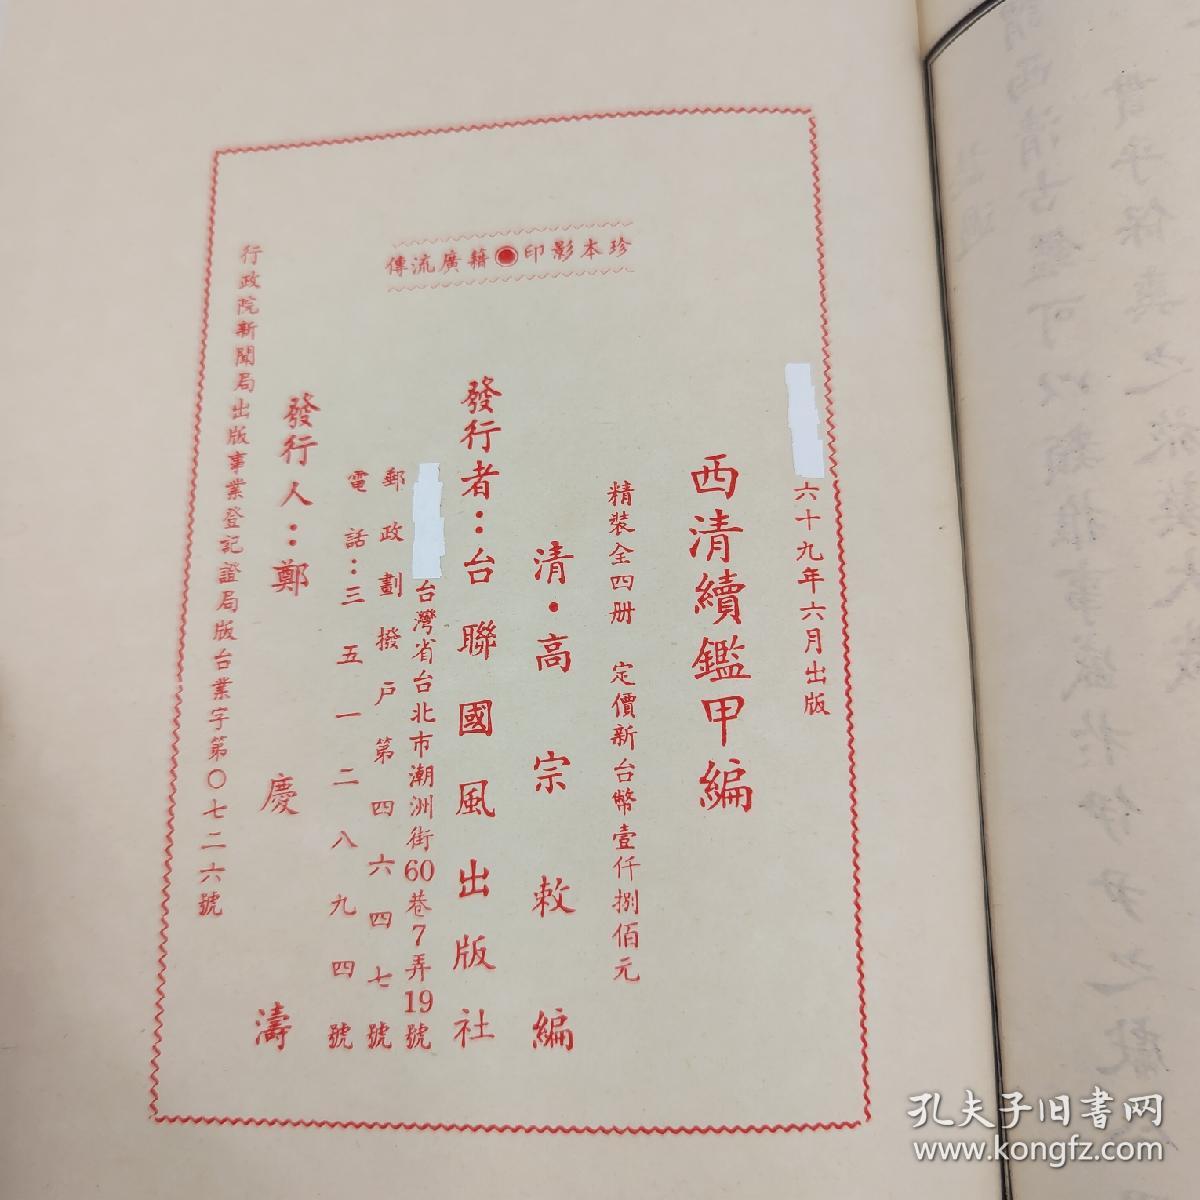 珍本影印●籍廣流傳
六十九年六月出版
西清續鑑甲編
精裝全四册 定價新台幣壹仟捌佰元
清·高宗敕編
發行者：台聯國風出版社
台灣省台北市潮洲街60巷7弄19號
郵政劃撥戶第四六四七號
電話：三五一二八九四號
發行人：鄭慶濤
行政院新聞局出版事業登記證局版台業字第〇七二六號
孔夫子旧书网
www.kongfz.com